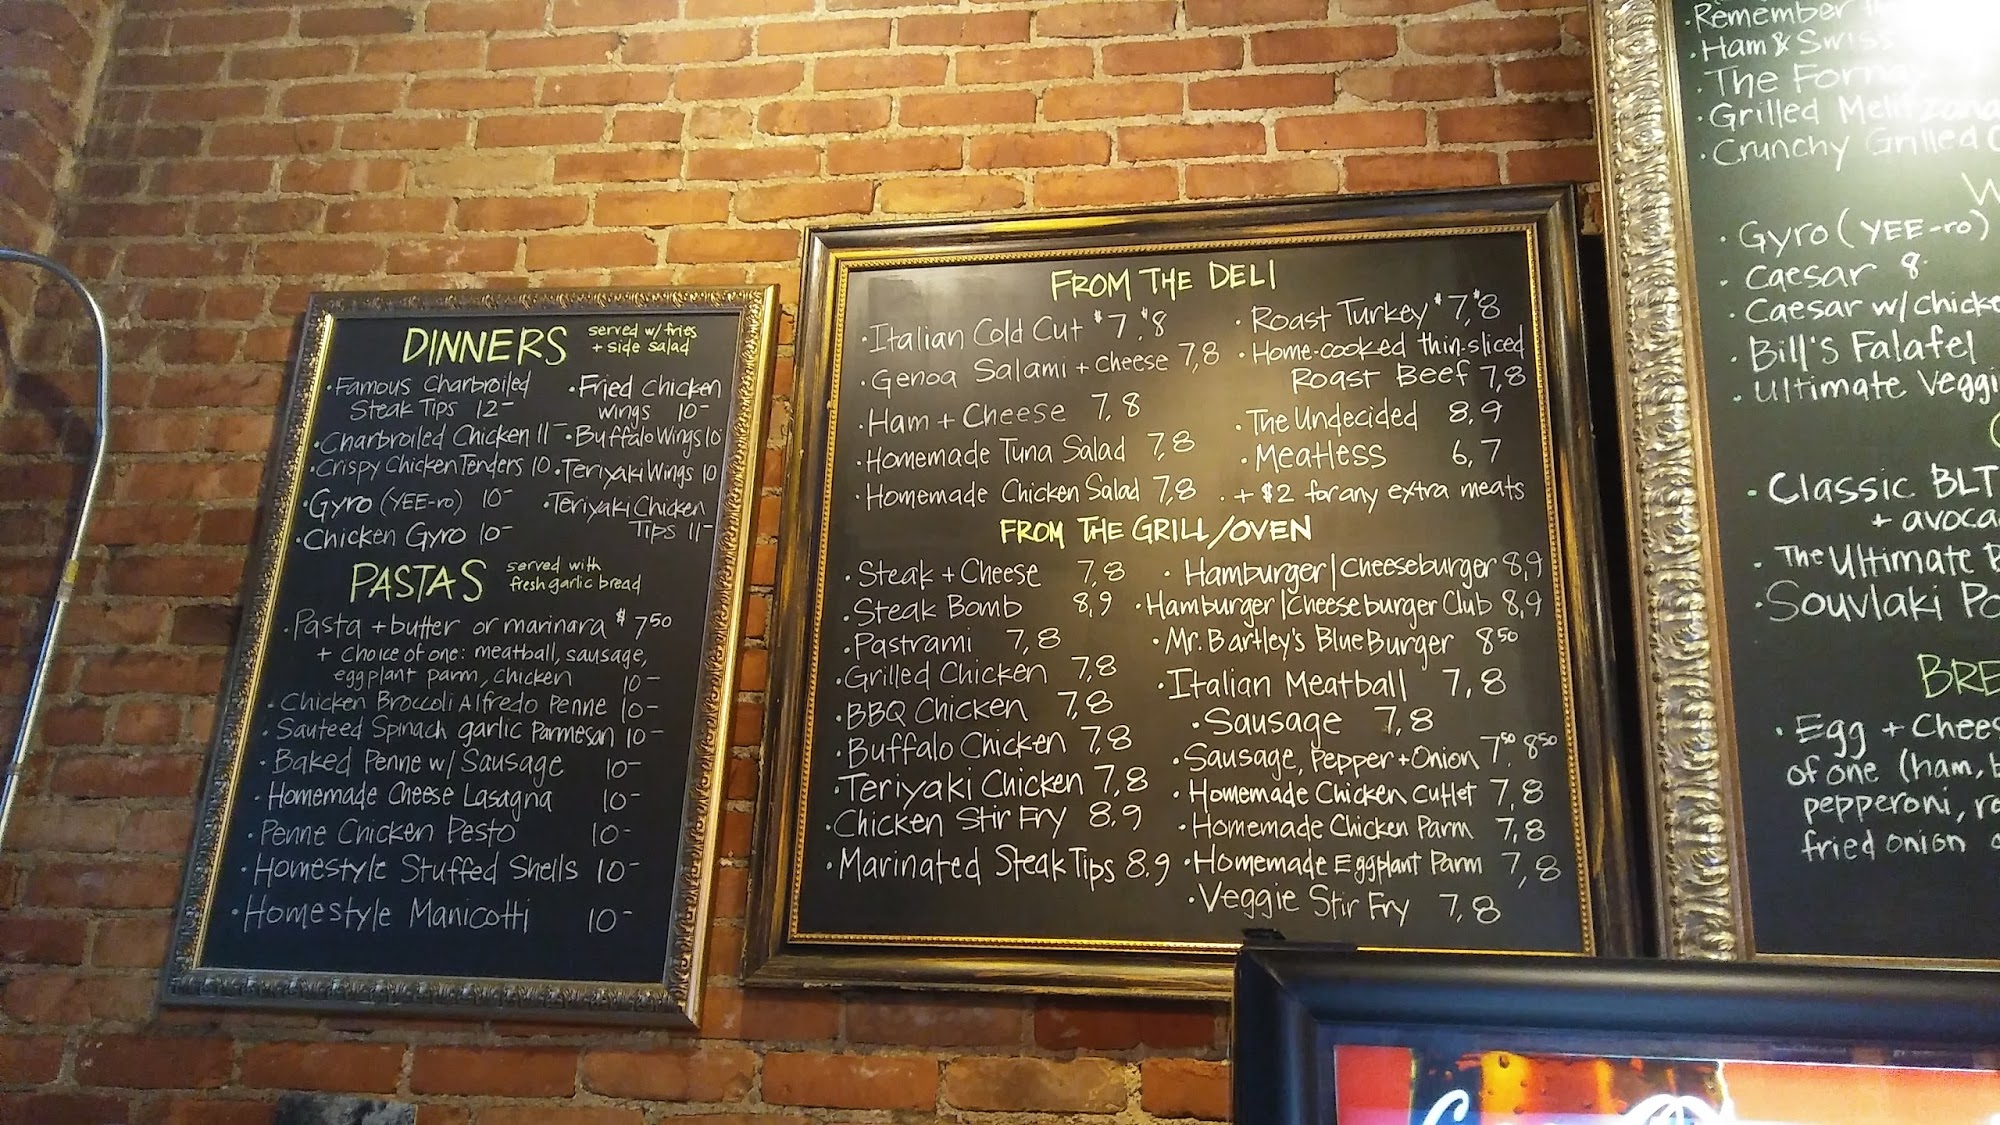 DINNERS served w/ fries
+ side salad
· Famous Charbroiled
Steak Tips 12-
· Charbroiled Chicken 11-
· Crispy Chicken Tenders 10
· Gyro (YEE-ro) 10-
· Chicken Gyro 10-
· Fried Chicken
Wings 10-
· Buffalo Wings 10
· Teriyaki Wings 10
· Teriyaki Chicken
Tips 11-
PASTAS served with
fresh garlic bread
· Pasta + butter or marinara $7 50
+ choice of one: meatball, sausage,
eggplant parm, chicken 10-
· Chicken Broccoli Alfredo Penne 10-
· Sauteed Spinach garlic Parmesan 10-
· Baked Penne w/ Sausage 10-
· Homemade Cheese Lasagna 10-
· Penne Chicken Pesto 10-
· Homestyle Stuffed Shells 10-
· Homestyle Manicotti 10-
FROM THE DELI
· Italian Cold Cut $7, $8
· Genoa Salami + Cheese 7,8
· Ham + Cheese 7,8
· Homemade Tuna Salad 7,8
· Homemade Chicken Salad 7,8
· Roast Turkey $7, $8
· Home-cooked thin-sliced
Roast Beef 7,8
· The Undecided 8,9
· Meatless 6,7
· + $2 for any extra meats
FROM THE GRILL/OVEN
· Steak + Cheese 7,8
· Steak Bomb 8,9
· Pastrami 7,8
· Grilled Chicken 7,8
· BBQ Chicken 7,8
· Buffalo Chicken 7,8
· Teriyaki Chicken 7,8
· Chicken Stir Fry 8.9
· Marinated Steak Tips 8.9
· Hamburger/Cheeseburger 8,9
· Hamburger/Cheeseburger Club 8,9
· Mr. Bartley's Blue Burger 8 50
· Italian Meatball 7,8
· Sausage 7,8
· Sausage, Pepper + Onion 7 50, 8 50
· Homemade Chicken Cutlet 7,8
· Homemade Chicken Parm 7,8
· Homemade Eggplant Parm 7,8
· Veggie Stir Fry 7,8
· Remember
· Ham & Swiss
· The Fornay
· Grilled Melitzana
· Crunchy Grilled
· Gyro (YEE-ro)
· Caesar 8
· Caesar w/ chicke
· Bill's Falafel
· Ultimate Veggi
· Classic BLT
+ avoca
· The Ultimate B
· Souvlaki Po
BRE
· Egg + Chees
of one (ham, b
pepperoni, ro
fried onion